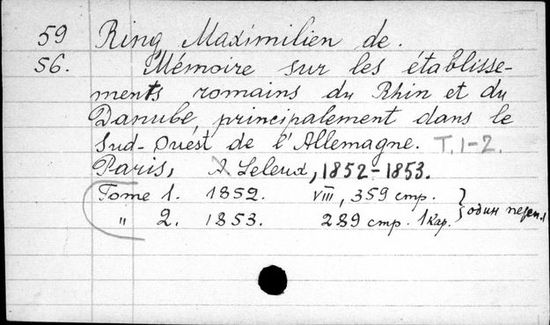 59 Ring Maximilien de.
56. Mémoire sur les établisse-
ments romains du Rhin et du
Danube, principalement dans le
Sud-Ouést de l'Allemagne. T. 1-2.
Paris, A. Leleux, 1852-1853.
Tome 1. 1852. VIII, 359 стр.
" 2. 1853. 289 стр. 1 кар. } один переп.